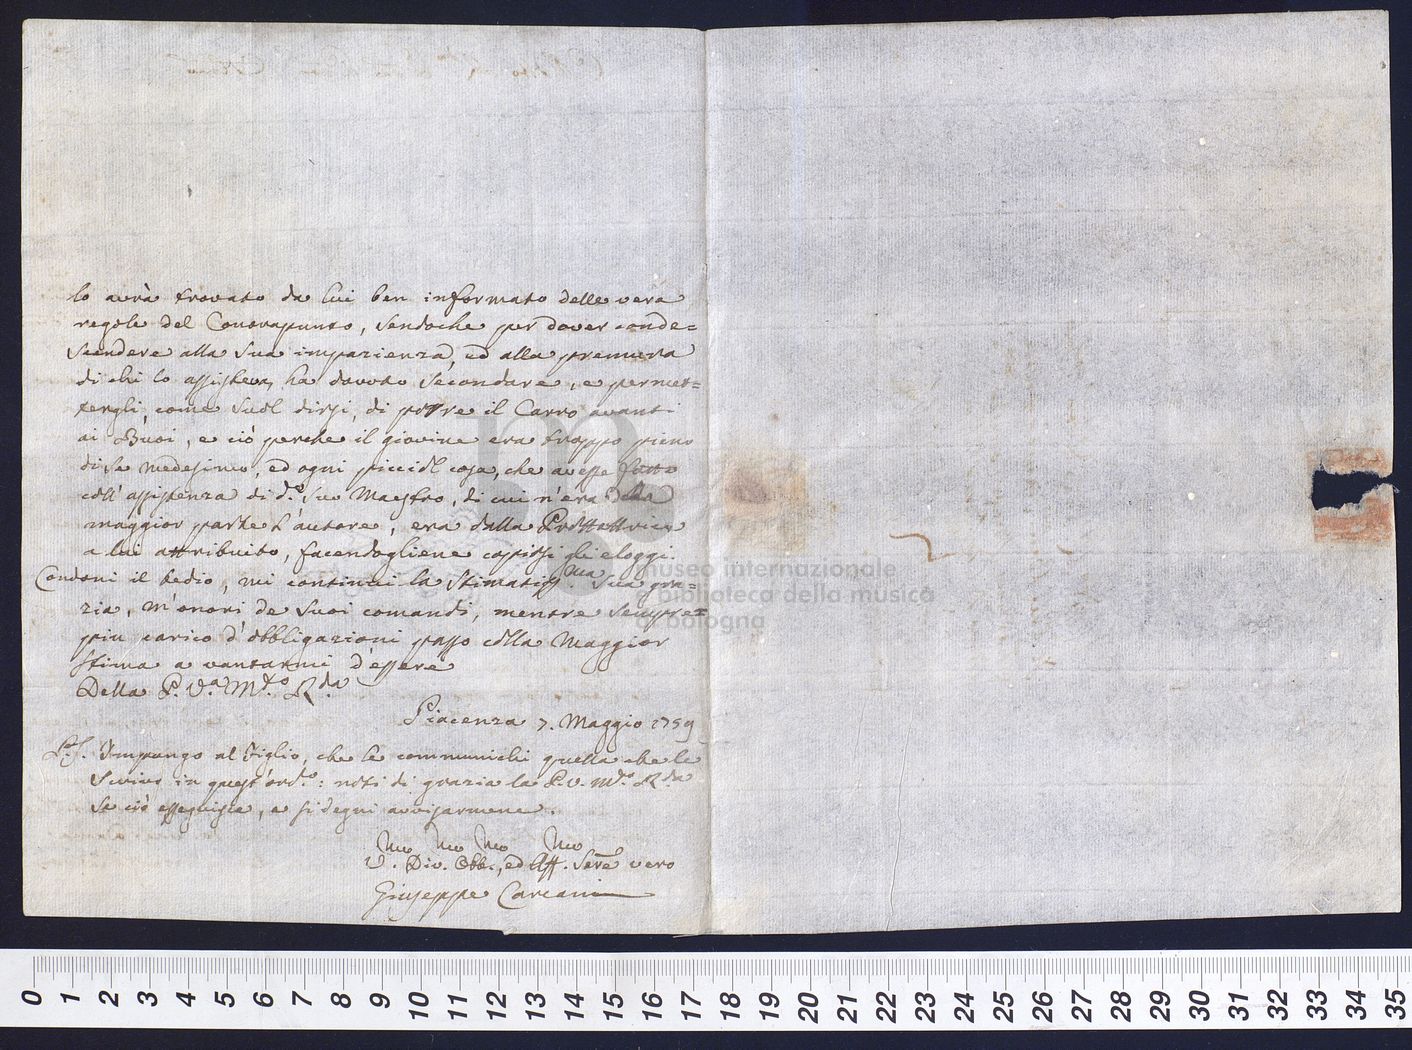 lo avrà trovato da lui ben informato delle vera
regole del Contrapunto, sendoche per dover conde=
scendere alla sua impazienza, ed alla premura
di chi lo assisteva, ha dovuto secondare, e permet=
tergli, come suol dirsi, di porre il Carro avanti
ai Buoi, e ciò perche il giovine era troppo pieno
di se medesimo, ed ogni piccidl cosa, che avesse fatto
coll' assistenza di d.º suo Maestro, di cui n'era della
maggior parte l'autore, era dalla Prottettrice
a lui attribuito, facendogliene copiosi gli eloggi.
Condoni il tedio, mi continui la stimatiss.ma Sua gra=
zia, m'onori de suoi comandi, mentre sempre=
piu carico d'obbligazioni passo colla Maggior
stima a vantarmi d'essere
Della P. V.a M.to R.da
Piacenza 7. Maggio 1759
P.S. Impongo al Figlio, che le communichi quella che le
Scrivo in quest'ord.º: noti di grazia la P. V. M.to R.da
se ciò esseguisce, e si degni avvisarmene.
U.mo Div.mo Obb.mo, ed Aff.mo Serre vero
Giuseppe Carcani
museo internazionale
e biblioteca della musica
di bologna
0 1 2 3 4 5 6 7 8 9 10 11 12 13 14 15 16 17 18 19 20 21 22 23 24 25 26 27 28 29 30 31 32 33 34 35